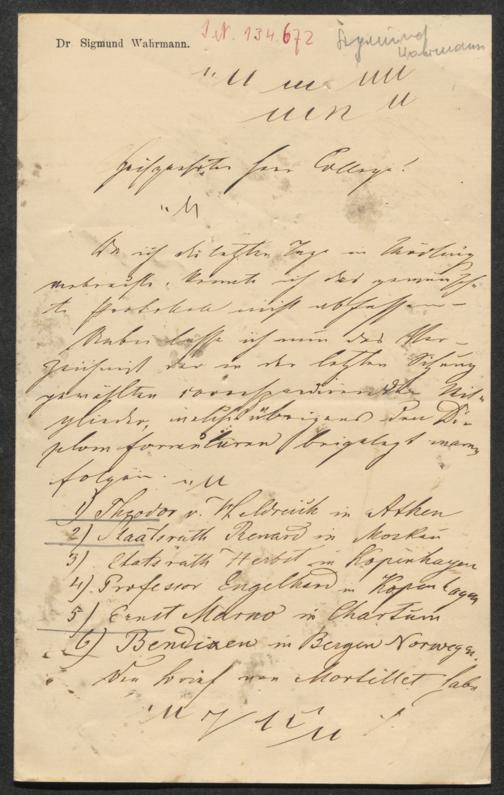 Dr. Sigmund Wahrmann.
I.N. 134.672
Sigmund
Wahrmann
Hochgeehrter Herr College!
Da ich die letzten Tage in Mödling
verbrachte, konnte ich das gewünsch-
te Protokoll nicht abfassen –
Anbei lasse ich nun das Ver-
zeichnis der in der letzten Sitzung
gewählten correspondirenden Mit-
glieder, welches übrigens den Di-
plomformularen beigelegt waren
folgen.
1) Theodor v. Heldreich in Athen
2) Staatsrath Renard in Moskau
3) Etatsrath Herbst in Kopenhagen
4) Professor Engelhard in Kopenhagen
5) Ernst Marno in Chartum
6) Bendixen in Bergen Norwegen.
Den Brief von Mortillet habe